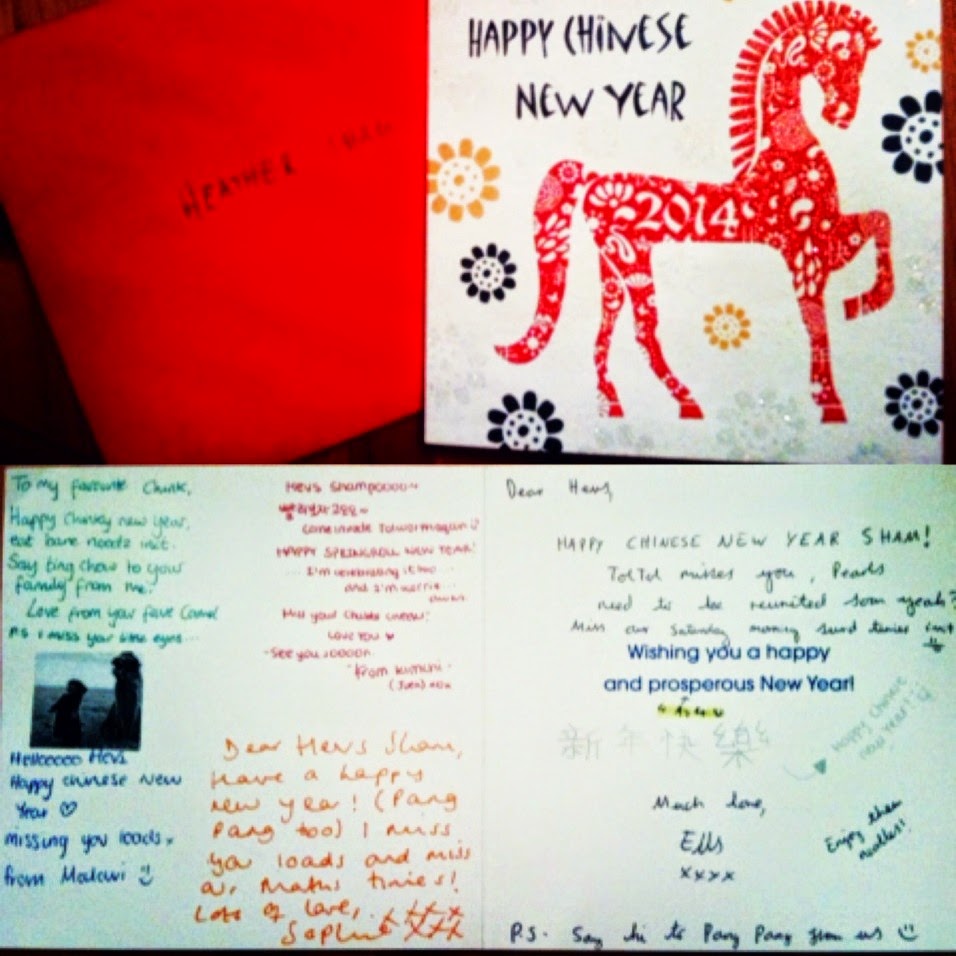 HAPPY CHINESE
NEW YEAR
2014
HEATHER
To my favourite Chink,
Happy Chinky new year,
eat bare noodz init.
Say ting chow to your
family from me.
Love from your fave
P.S I miss your little eyes...
Hellooooo Hevs
Happy chinese New
Year ♡
missing you loads x
from Malawi
Hevs Shampoooo
HAPPY SPRINGROLL NEW YEAR!
... I'm celebrating it too ...
and I'm
Miss your
LOVE YOU ♥
-See you soooon
from kimini
Dear Hevs Sham,
Have a happy
new year! (Pang
Pang too) I miss
you loads and miss
our Maths times!
Lots of love,
Sophie xxx
Dear Hevs,
HAPPY CHINESE NEW YEAR SHAM!
misses you, Pearls
need to be reunited soon yeah?
Miss our Saturday
Wishing you a happy
and prosperous New Year!
新年快樂
Happy Chinese
new year!
Much love,
Ells
xxxx
Enjoy them
noodles!
P.S. Say hi to Pang Pang from us